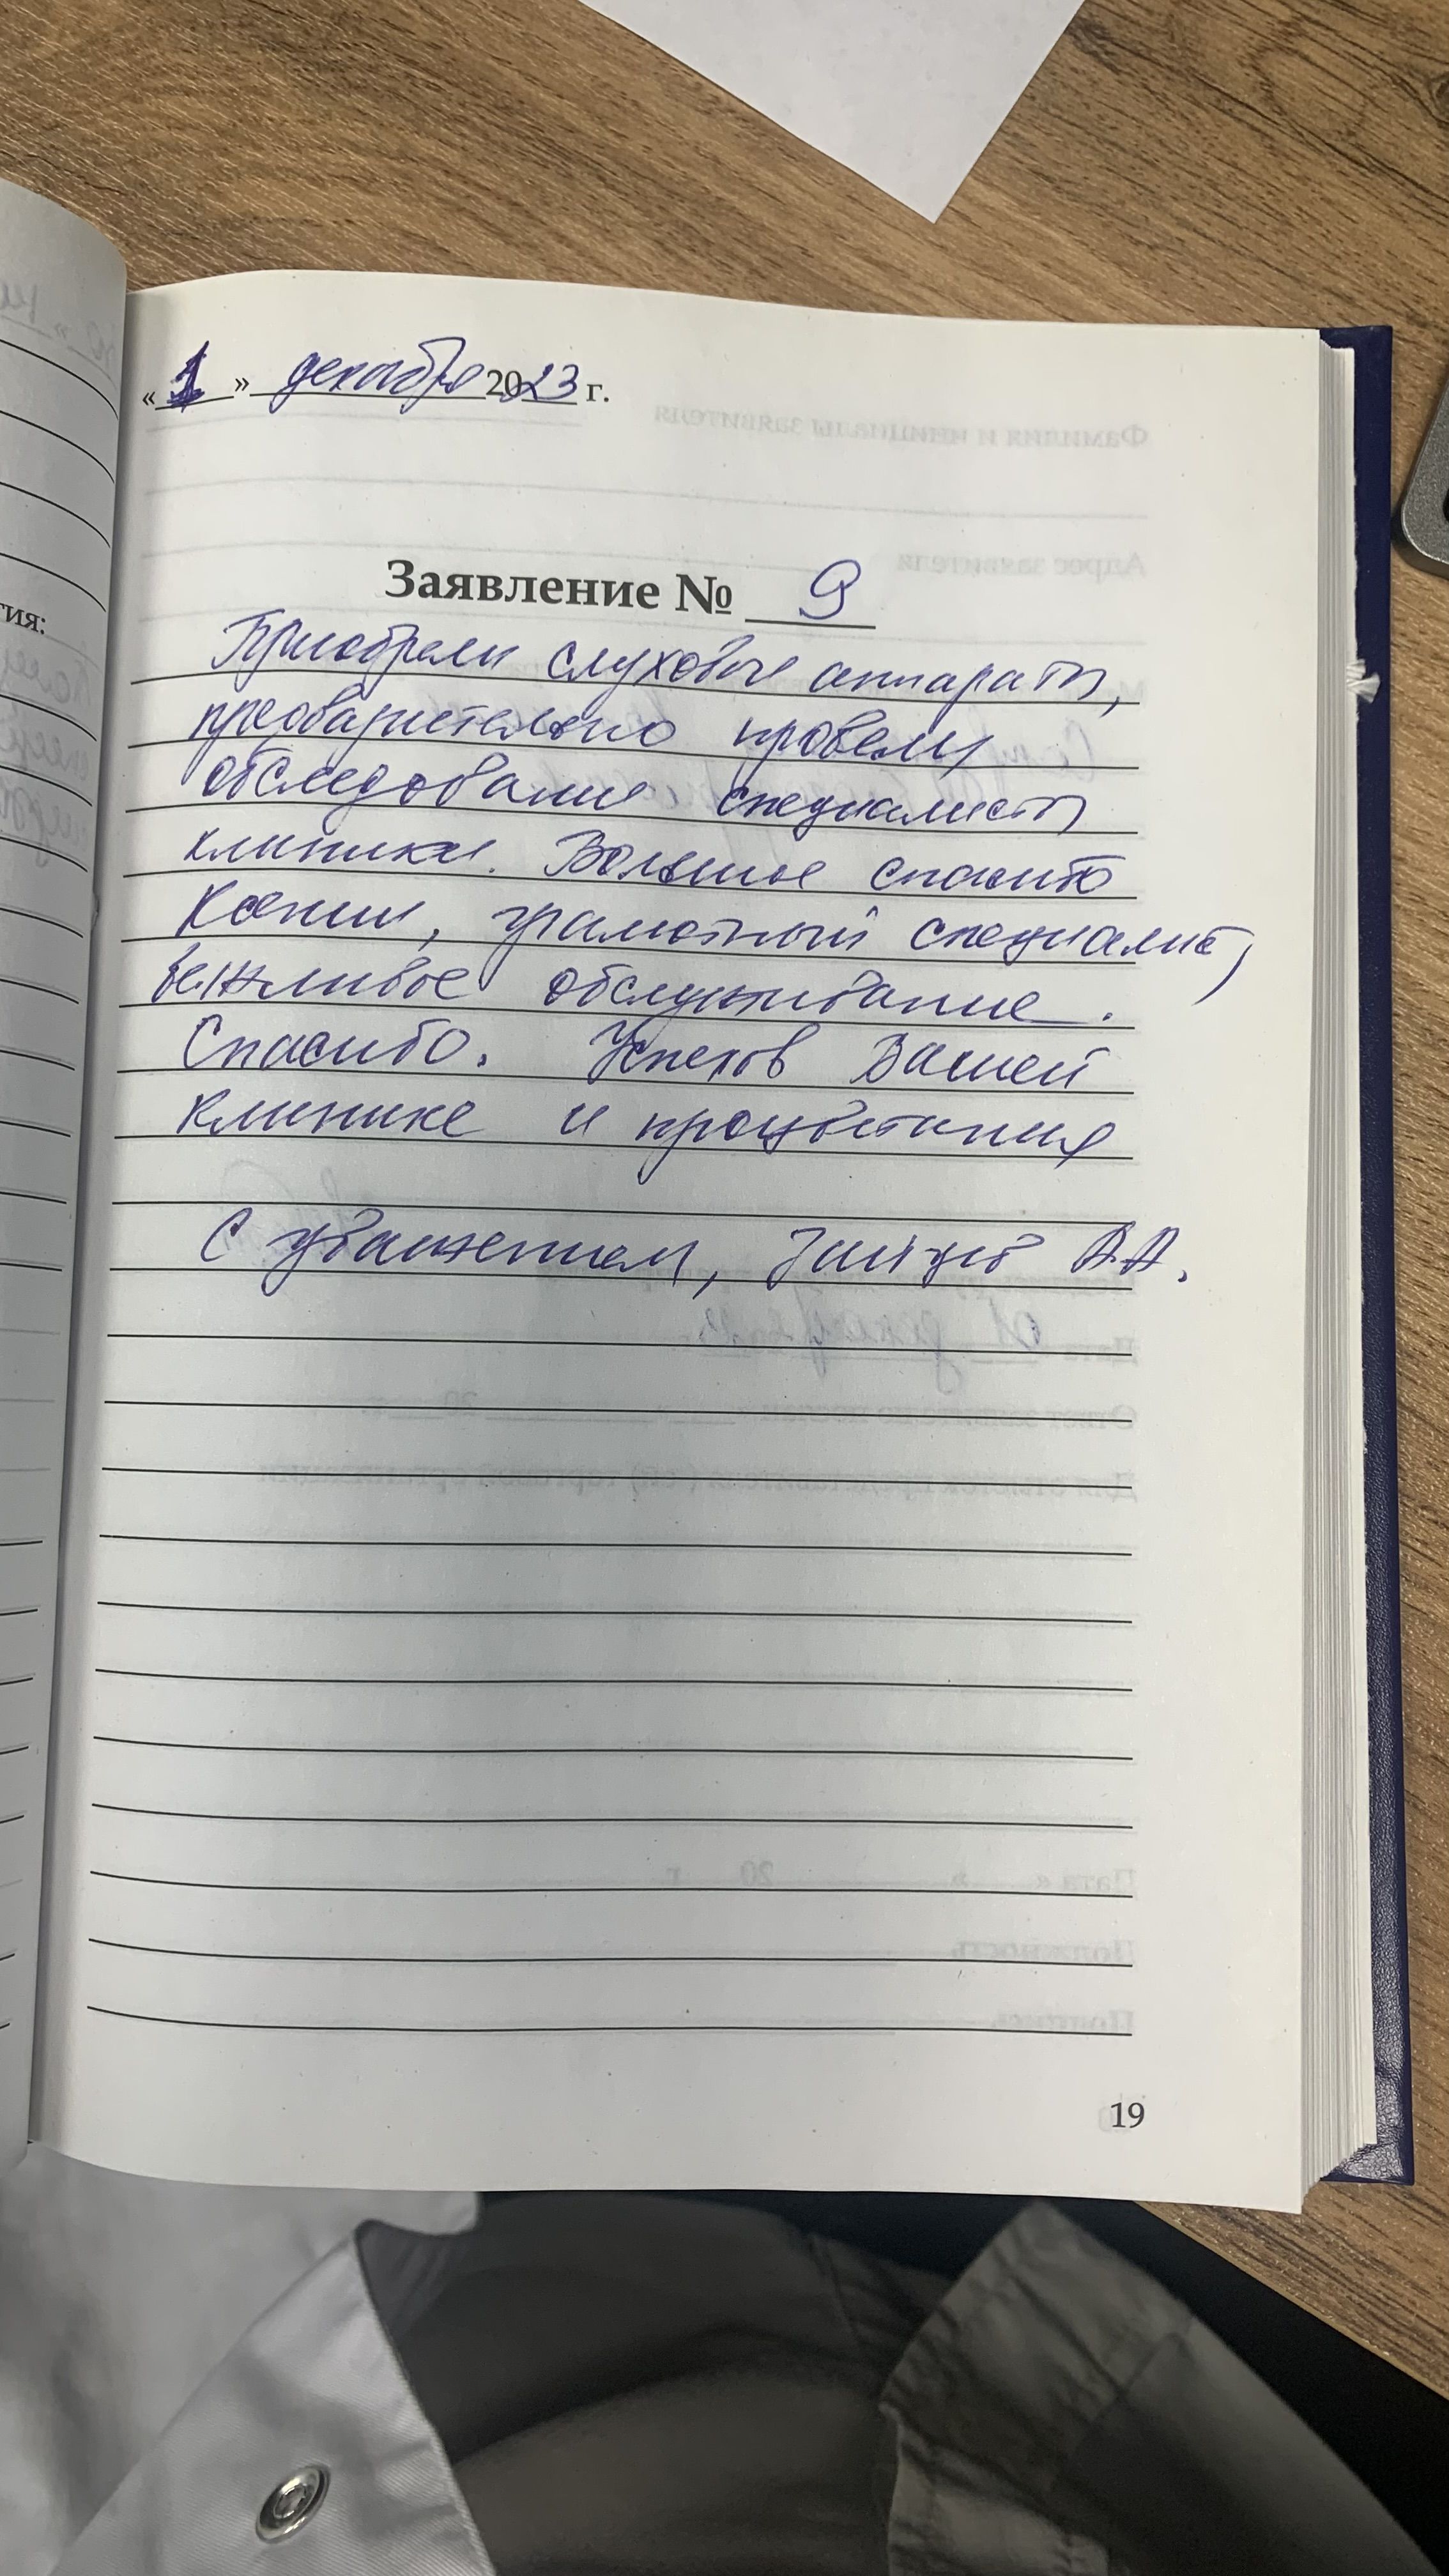 « 1 » декабря 2023 г.
Заявление № 9
Приобрели слуховые аппараты,
предварительно провели
обследование специалисты
клиники. Большое спасибо
Ксении, грамотный специалист,
вежливое обслуживание.
Спасибо. Успехов Вашей
клинике и процветания
С уважением, Зайцев А.А.
19
тия: